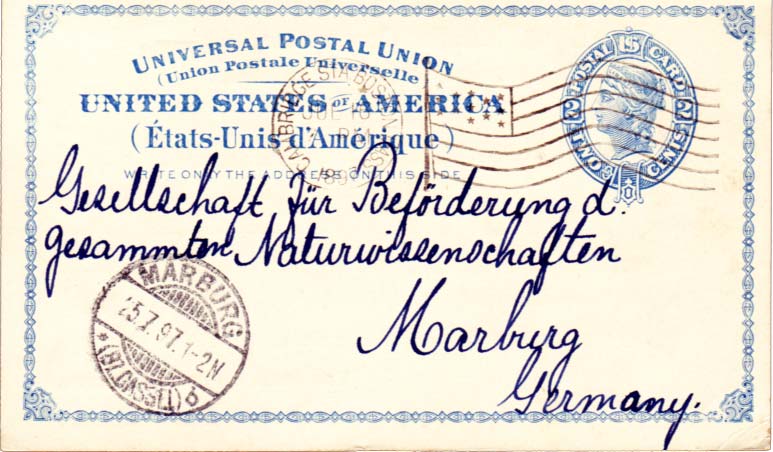 UNIVERSAL POSTAL UNION
(Union Postale Universelle
UNITED STATES OF AMERICA
(États-Unis d'Amérique)
WRITE ONLY THE ADDRESS ON THIS SIDE
POSTAL CARD
TWO CENTS
2 2
U S
CAMBRIDGE STA BOSTON MASS
JUL 16
PM
189
Gesellschaft für Beförderung d.
gesammten Naturwissenschaften
Marburg
Germany.
MARBURG
25.7.97.1-2N
* (BZ.CASSEL) b